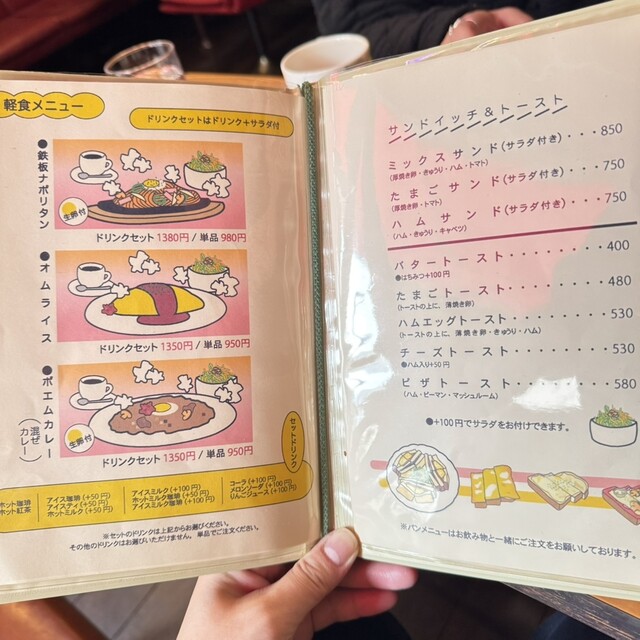 軽食メニュー
ドリンクセットはドリンク+サラダ付
●鉄板ナポリタン
生卵付
ドリンクセット 1380円 / 単品 980円
●オムライス
ドリンクセット 1350円 / 単品 950円
●ポエムカレー
(混ぜカレー)
生卵付
ドリンクセット 1350円 / 単品 950円
セットドリンク
ホット珈琲
ホット紅茶
アイス珈琲(+50円)
アイスティ(+50円)
ホットミルク(+50円)
アイスミルク(+100円)
ホットミルク珈琲(+50円)
アイスミルク珈琲(+100円)
コーラ(+100円)
メロンソーダ(+100円)
りんごジュース(+100円)
※セットのドリンクは上記からお選びください。
その他のドリンクはお選びいただけません。単品でご注文ください。
サンドイッチ&トースト
ミックスサンド(サラダ付き)・・・850
(厚焼き卵・きゅうり・ハム・トマト)
たまごサンド(サラダ付き)・・・750
(厚焼き卵・トマト)
ハムサンド(サラダ付き)・・・750
(ハム・きゅうり・キャベツ)
バタートースト・・・・・・・・・400
●はちみつ+100円
たまごトースト・・・・・・・・・480
(トーストの上に、薄焼き卵)
ハムエッグトースト・・・・・・・530
(トーストの上に、薄焼き卵・きゅうり・ハム)
チーズトースト・・・・・・・・・530
●ハム入り+50円
ピザトースト・・・・・・・・・・580
(ハム・ピーマン・マッシュルーム)
●+100円でサラダをお付けできます。
※パンメニューはお飲み物と一緒にご注文をお願いしております。